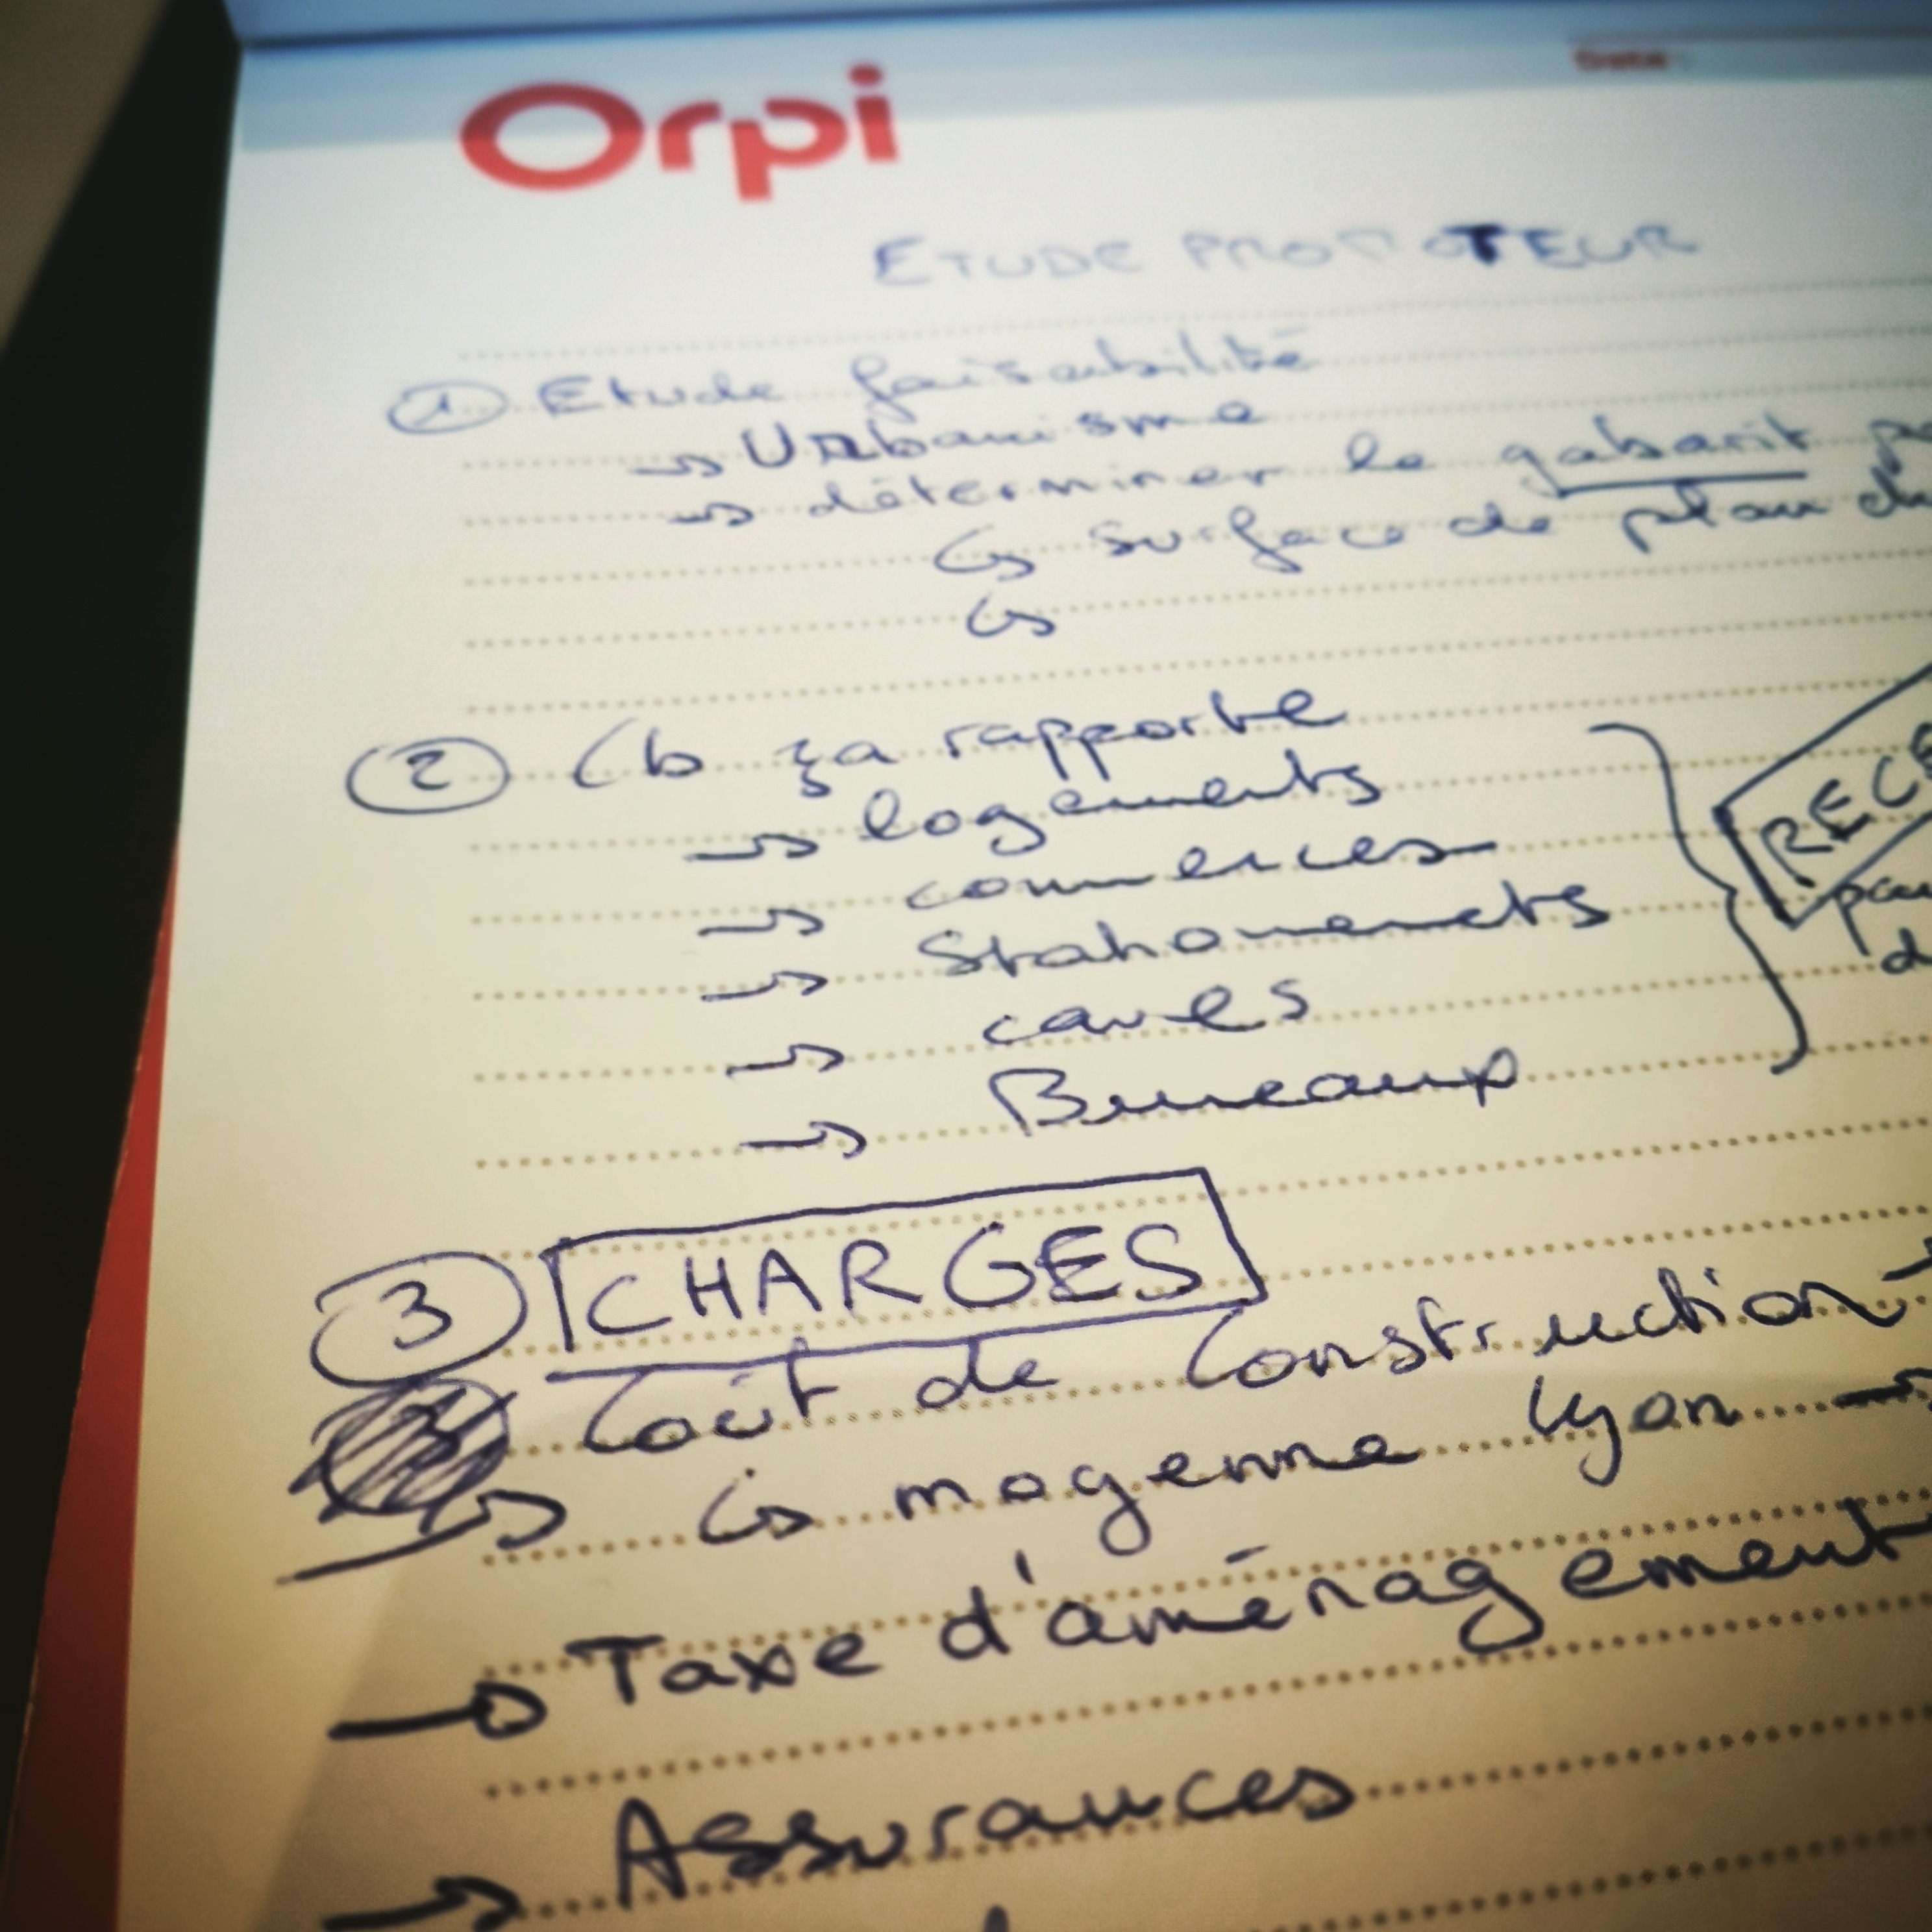 Orpi
Date
ETUDE PROMOTEUR
1 Etude faisabilité
→ Urbanisme
→ déterminer le gabarit
↳ surface de plan
↳
2 Cb ça rapporte
→ logements
→ commerces
→ Stationements
→ caves
→ Bureaux
RECE
3 CHARGES
Coût de Construction →
↳ moyenne Lyon →
→ Taxe d'aménagement
→ Assurances